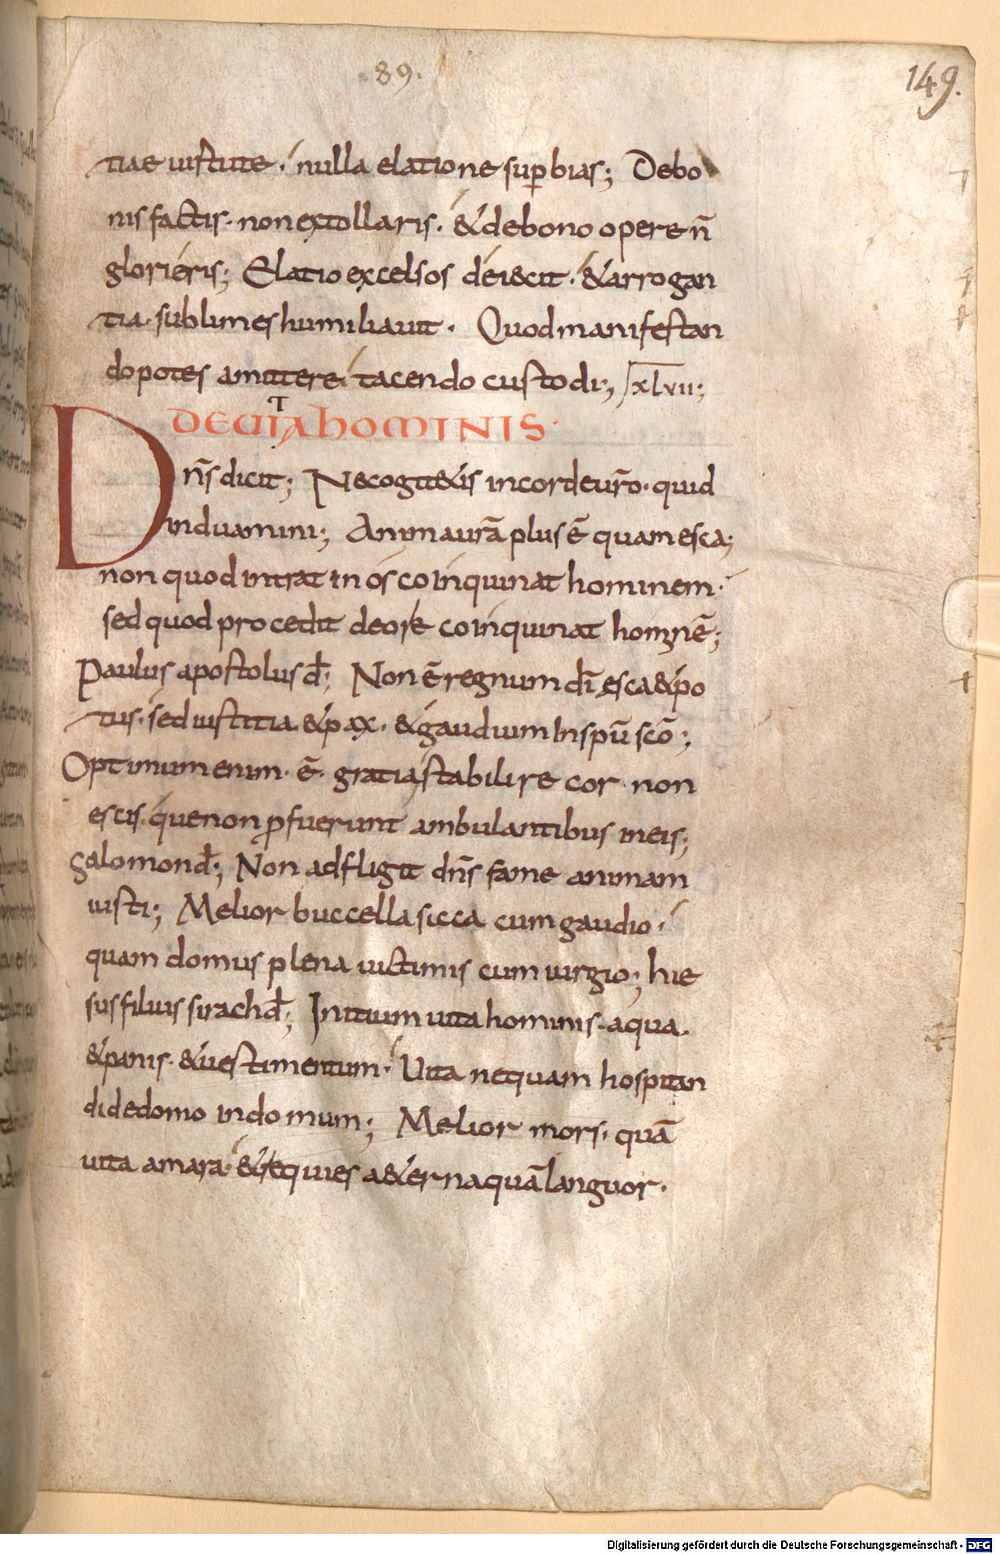 89.
149.
tiae uirtute. nulla elatione supbias; Debo
nis factis. non extollaris. & debono opere n̄
glorieris; Elatio excelsos deiecit. & arrogan
tia. sublimes humiliauit. Quod manifestan
do potes amittere. tacendo custodi; xlvii;
DE UITA HOMINIS.
Dn̄s dicit; Ne cogitetis in corde ur̄o. quid
induamini; Anima ur̄a plus ē quam esca;
non quod intrat in os coinquinat hominem.
sed quod procedit de ore coinquinat hominē;
Paulus apostolus d̄; Non ē regnum dī esca & po
tus. sed iustitia & pax. & gaudium in spū scō;
Optimum enim. ē. gratia stabilire cor non
escis. que non pfuerunt ambulantibus in eis;
Salomon d̄; Non adfligit dn̄s fame animam
iusti; Melior buccella sicca cum gaudio.
quam domus plena uictimis cum iurgio; hie
sus filius sirach d̄; Initium uita hominis. aqua.
& panis. & uestimentum. Uita nequam hospitan
di de domo in domum; Melior mors. quā
uita amara. & requies aeterna quā languor.
Digitalisierung gefördert durch die Deutsche Forschungsgemeinschaft - DFG